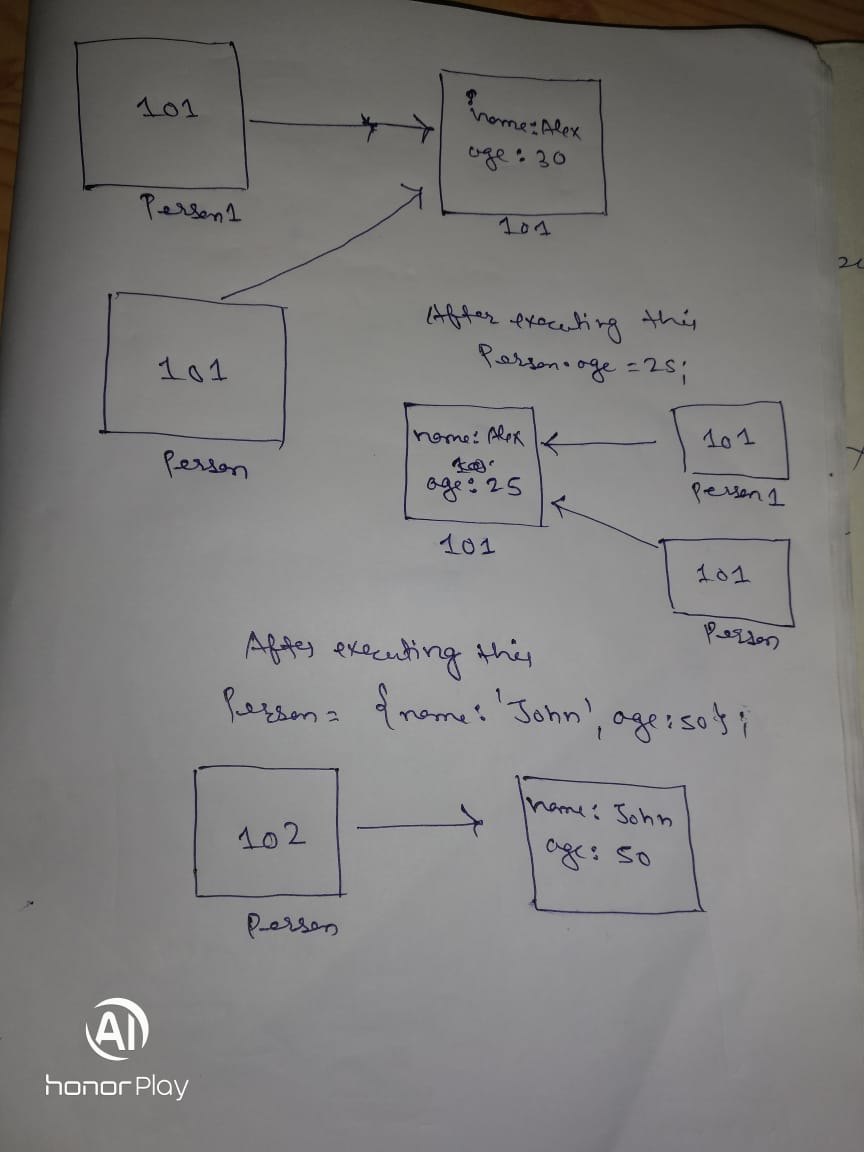 101
Person1
name: Alex
age: 30
101
101
Person
After executing this
Person.age = 25;
name: Alex
age: 25
101
101
Person1
101
Person
After executing this
Person = {name: 'John', age: 50};
102
Person
name: John
age: 50
AI
honor Play